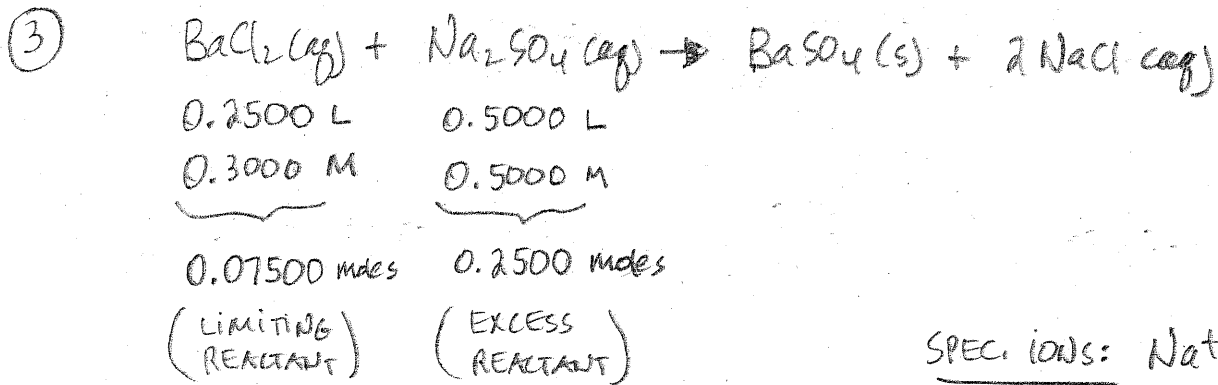 ③ BaCl₂ (aq) + Na₂SO₄ (aq) → BaSO₄ (s) + 2 NaCl (aq)
0.2500 L 0.5000 L
0.3000 M 0.5000 M
0.07500 moles 0.2500 moles
(LIMITING REACTANT) (EXCESS REACTANT)
SPEC. IONS: Na⁺